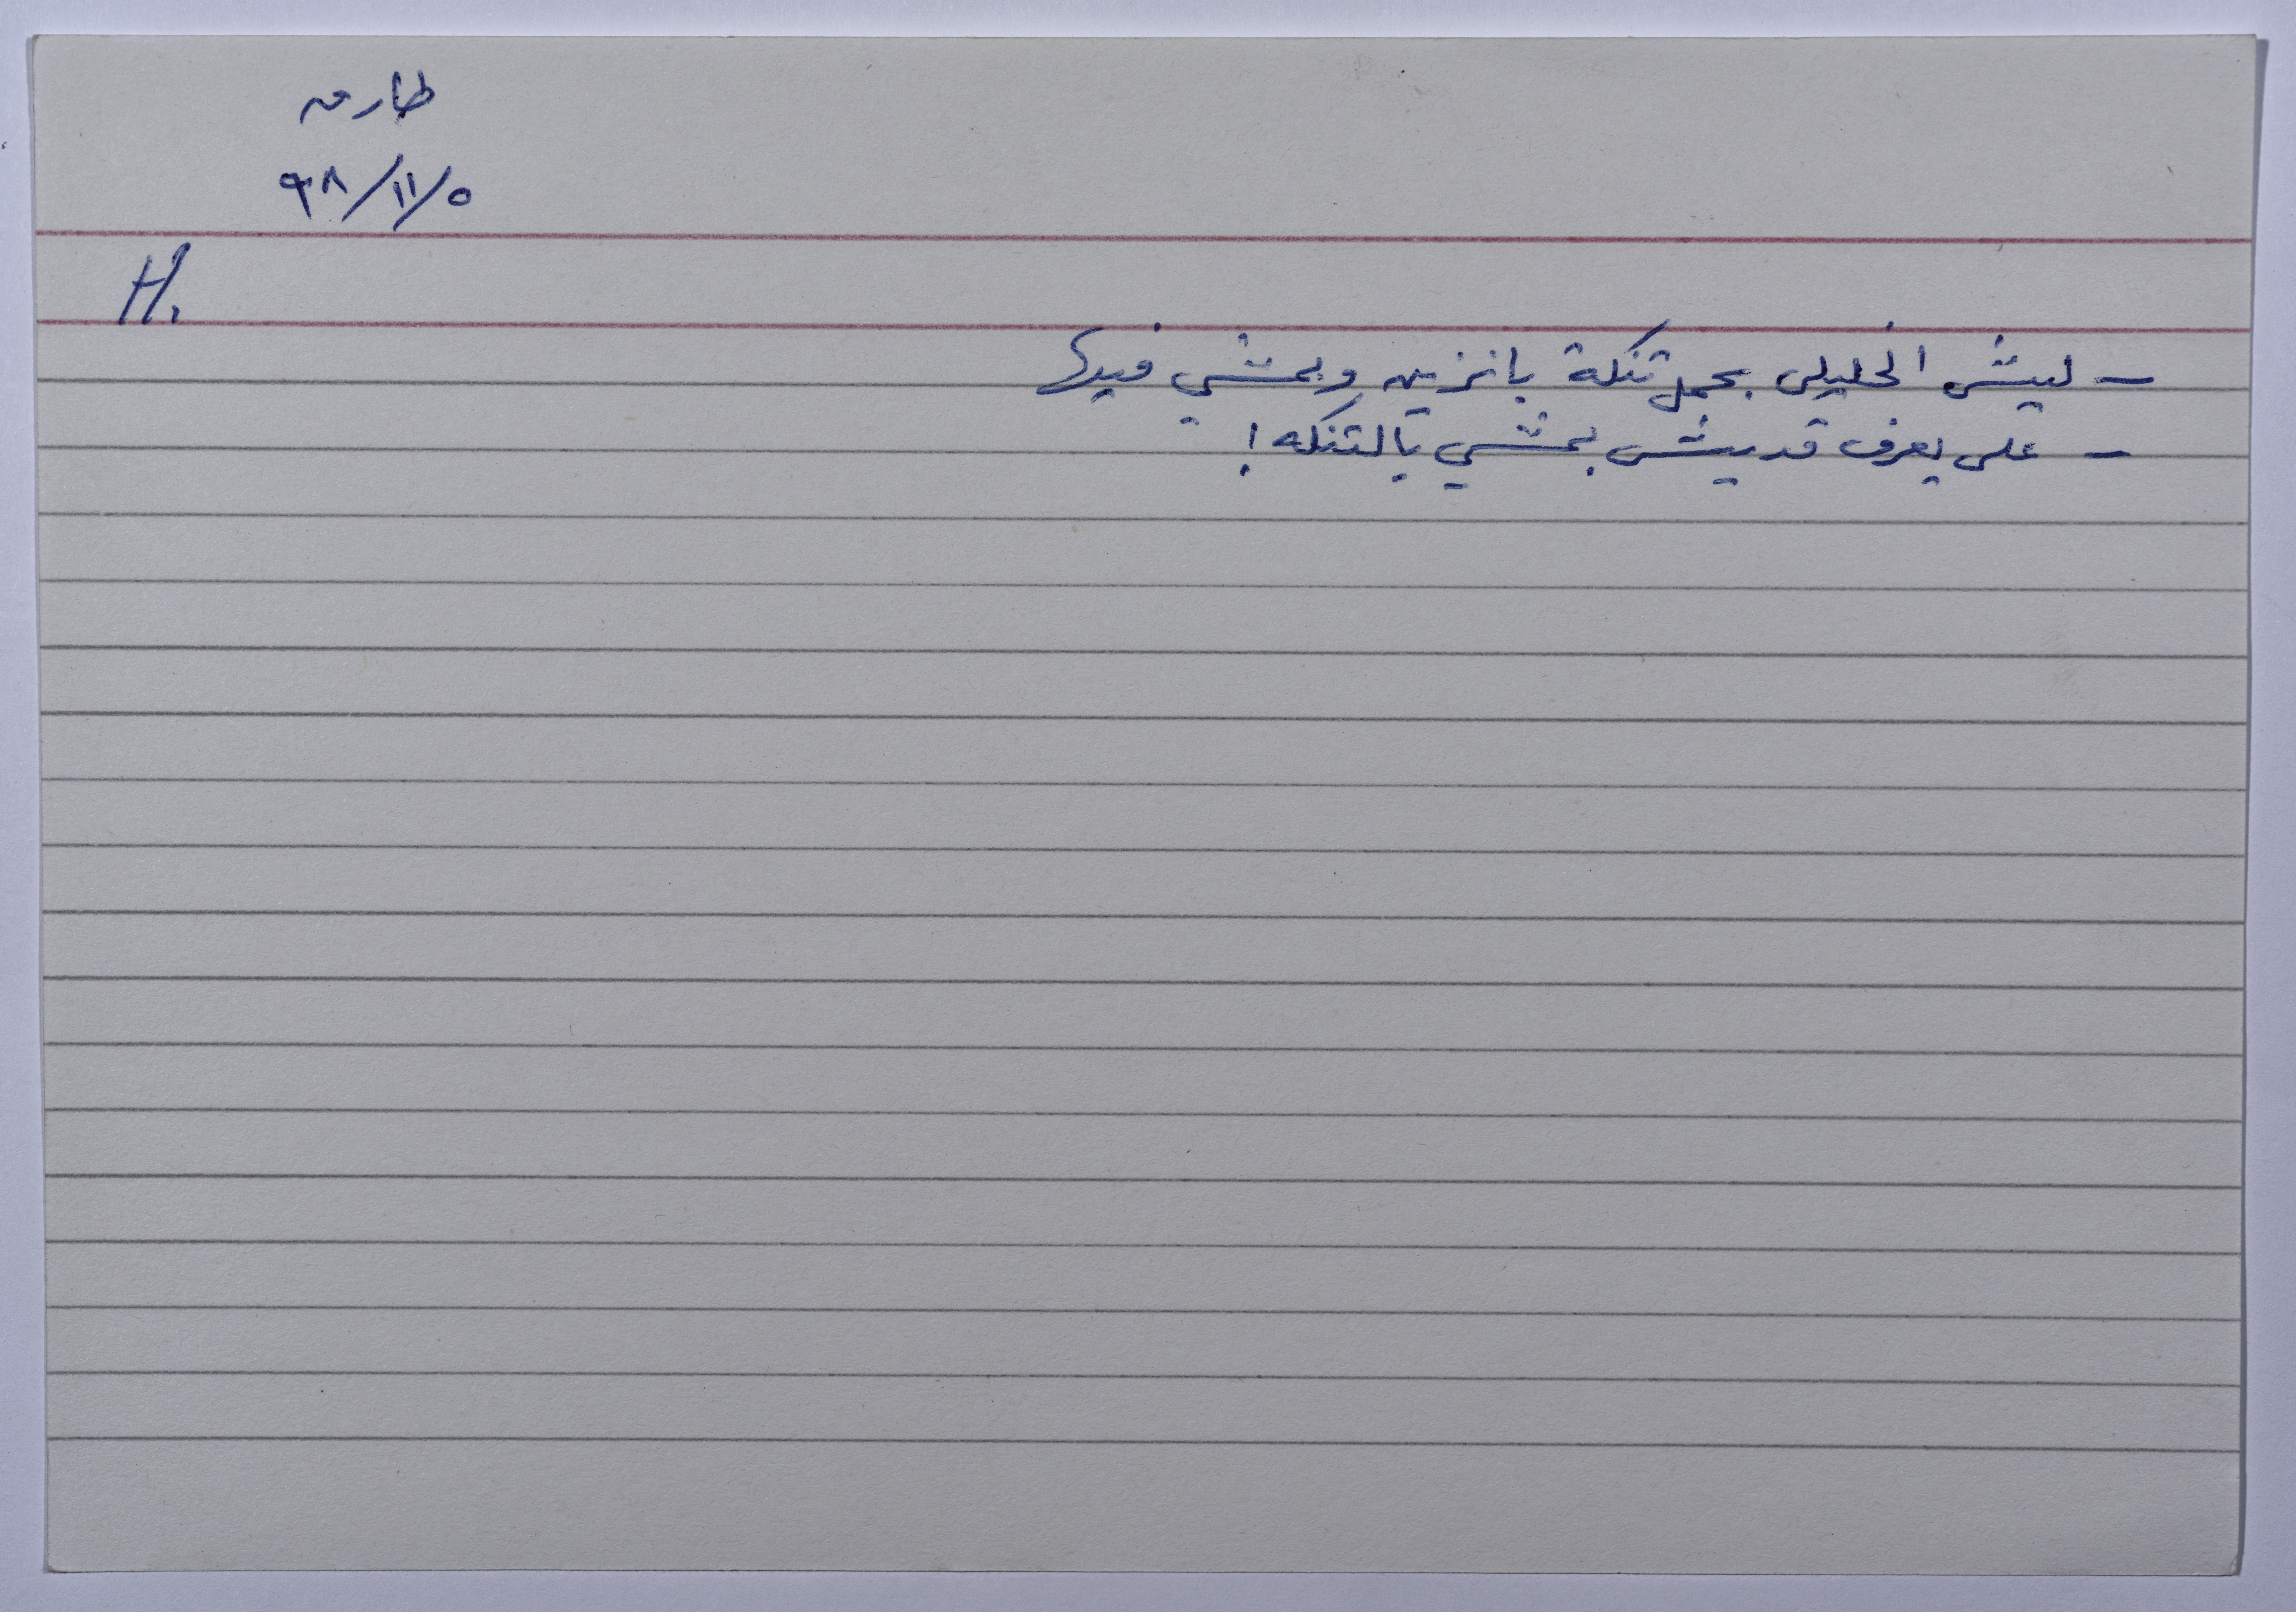 طارق
٩٨/١١/٥
H.
- ليش الخليلي بحمل تنكة بانزين وبمشي فيها
- على يعرف قديش بمشي بالتنكه !